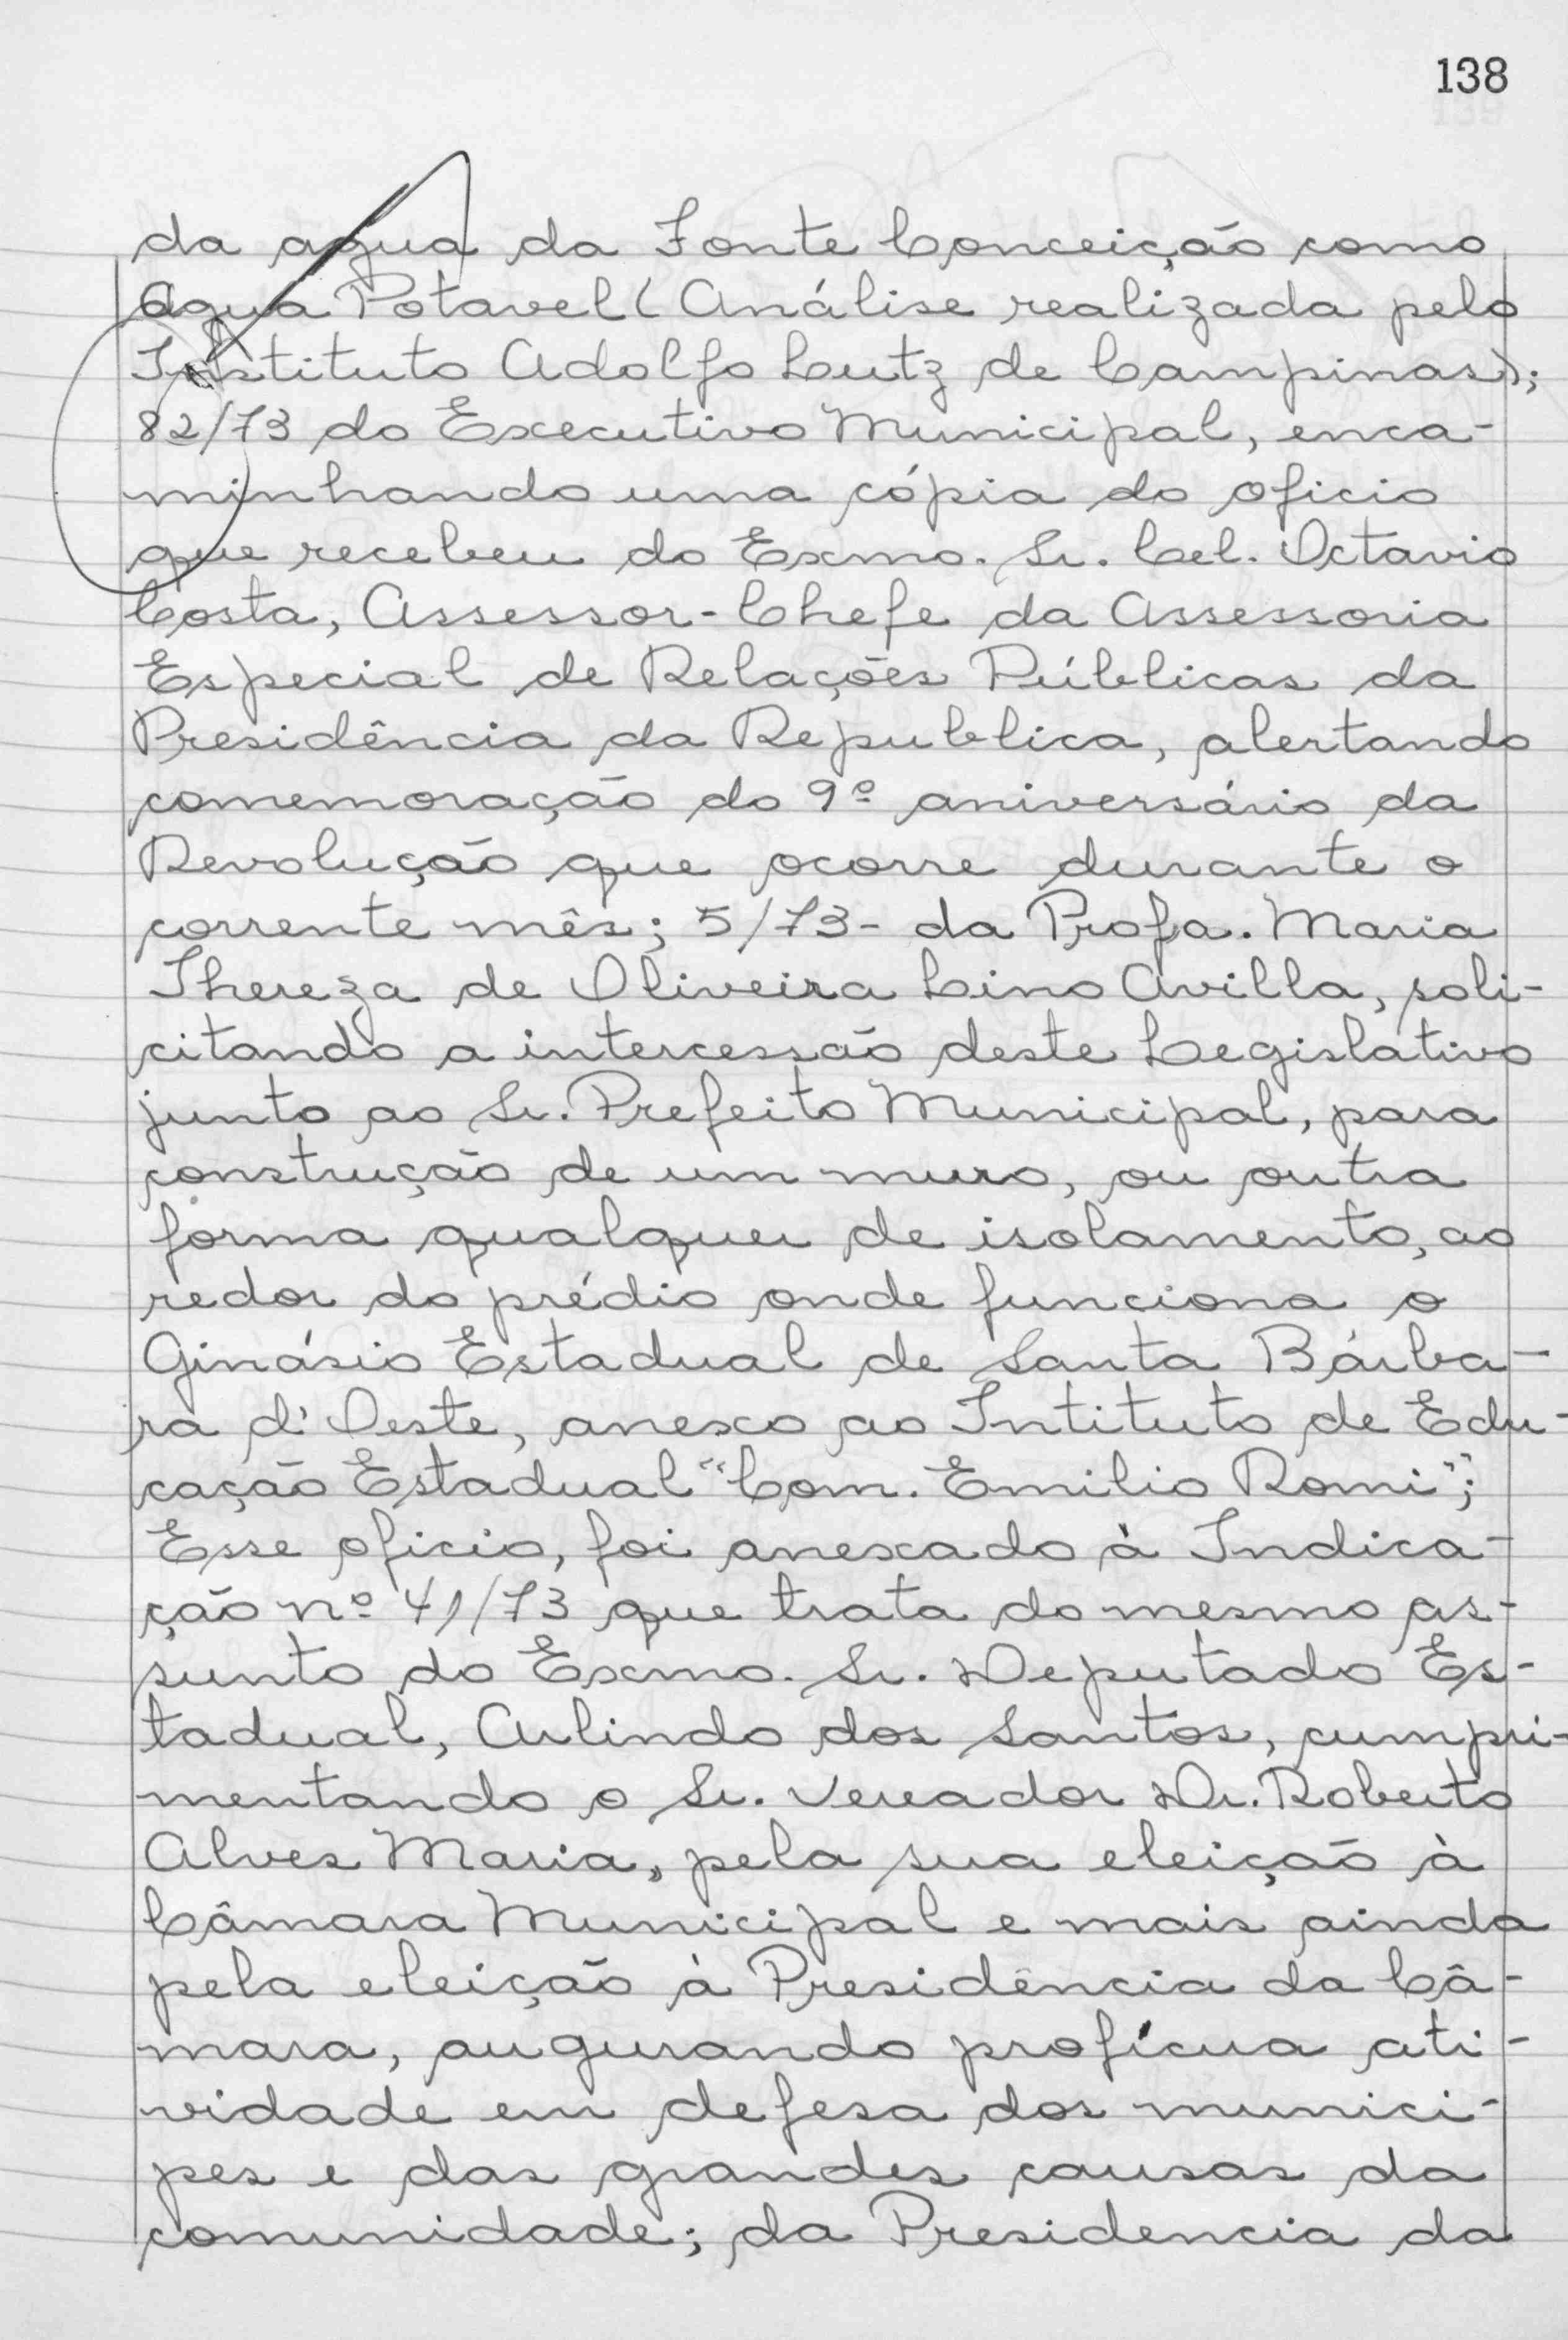 138
da agua da Fonte Conceição como
Agua Potavel (Análise realizada pelo
Instituto Adolfo Lutz de Campinas);
82/73 do Executivo Municipal, enca-
minhando uma cópia do oficio
que recebeu do Exmo. Sr. Cel. Octavio
Costa, Assessor-Chefe da Assessoria
Especial de Relações Públicas da
Presidência da Republica, alertando
comemoração do 9º aniversário da
Revolução que ocorre durante o
corrente mês; 5/73- da Profa. Maria
Thereza de Oliveira Lino Avilla, soli-
citando a intercessão deste Legislativo
junto ao Sr. Prefeito Municipal, para
construção de um muro, ou outra
forma qualquer de isolamento, ao
redor do prédio onde funciona o
Ginásio Estadual de Santa Bárba-
ra d'Oeste, anexo ao Intituto de Edu-
cação Estadual "Com. Emilio Romi";
Esse oficio, foi anexado à Indica-
ção nº 41/73 que trata do mesmo as-
sunto do Exmo. Sr. Deputado Es-
tadual, Arlindo dos Santos, cumpri-
mentando o Sr. Vereador Dr. Roberto
Alves Maria, pela sua eleição à
Câmara Municipal e mais ainda
pela eleição à Presidência da Câ-
mara, augurando profícua ati-
vidade em defesa dos munici-
pes e das grandes causas da
comunidade; da Presidencia da